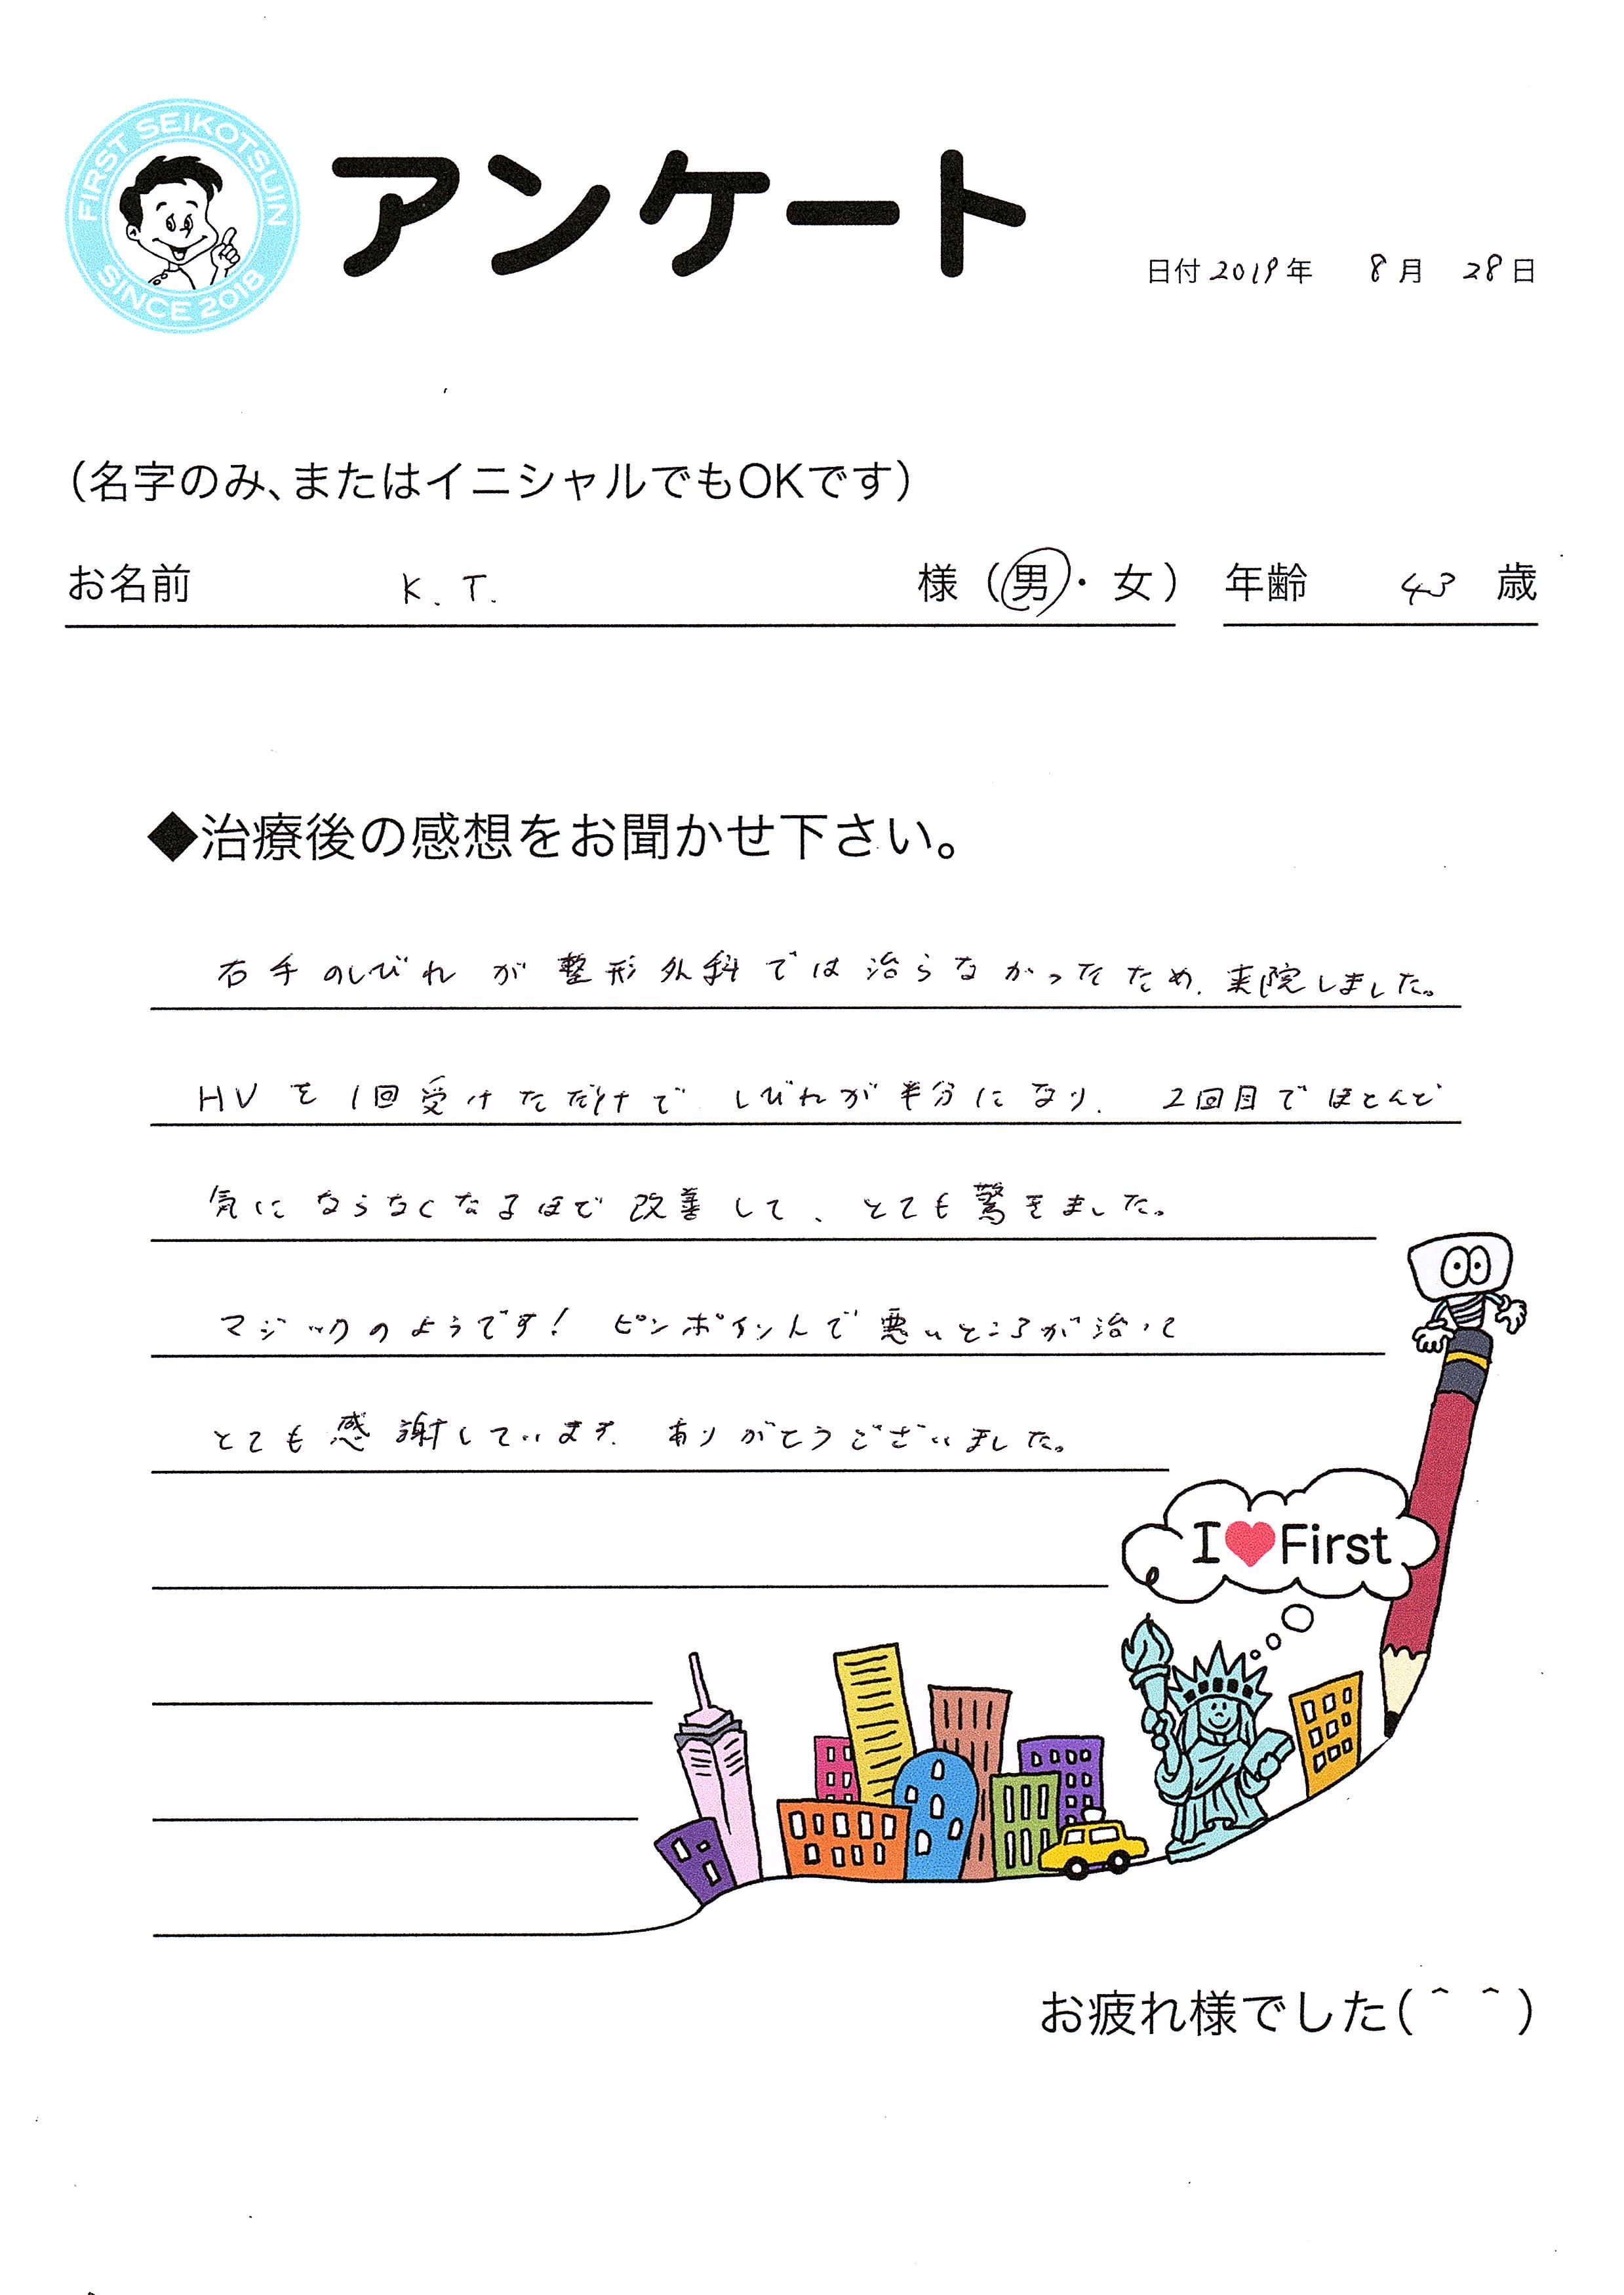 FIRST SEIKOTSUIN
SINCE 2018
アンケート
日付 2019年 8月 28日
（名字のみ、またはイニシャルでもOKです）
お名前 K.T. 様（男・女） 年齢 43 歳
◆治療後の感想をお聞かせ下さい。
右手のしびれが整形外科では治らなかったため、来院しました。
HVを1回受けただけで、しびれが半分になり、2回目でほとんど
気にならなくなるほど改善して、とても驚きました。
マジックのようです！ピンポイントで悪いところが治って
とても感謝しています。ありがとうございました。
I♥First
お疲れ様でした(＾＾)